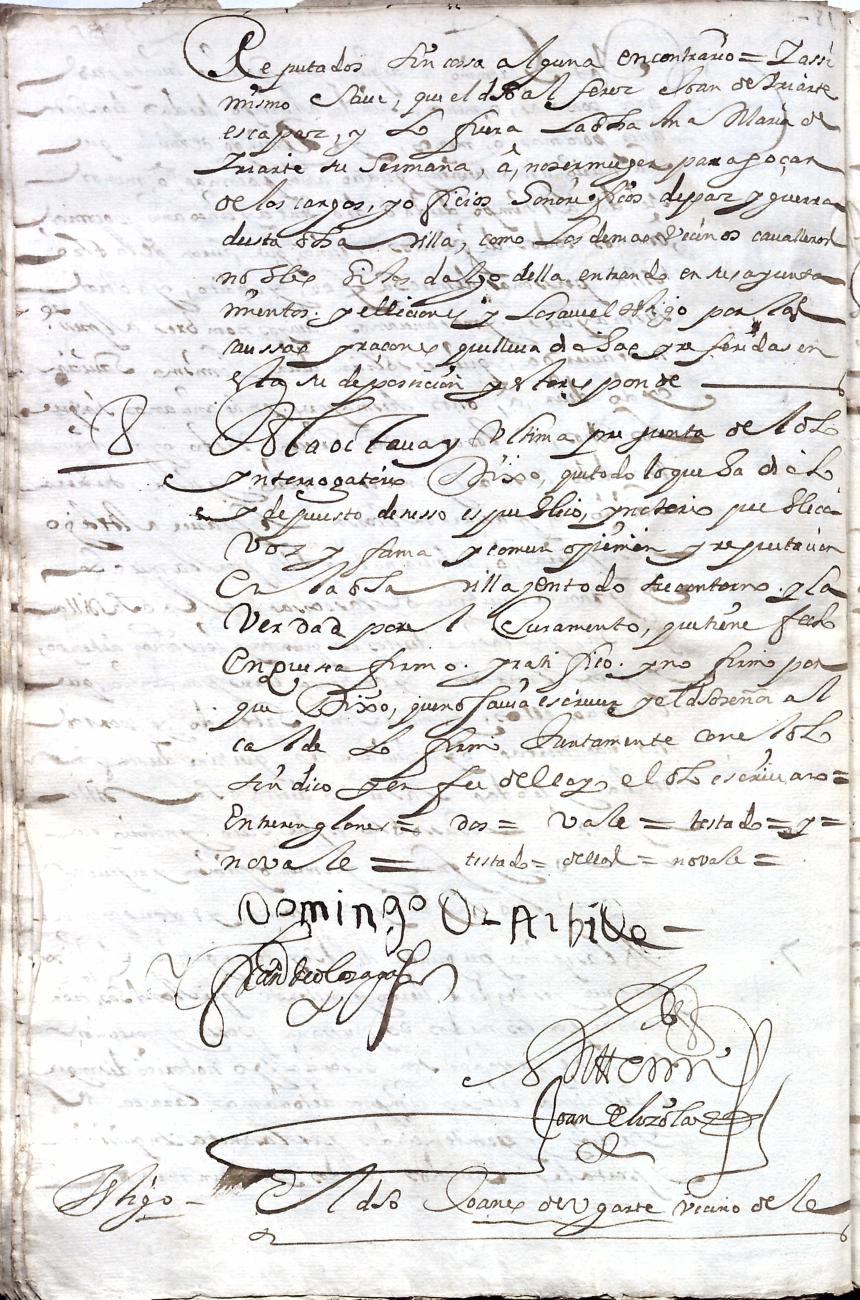 Reputados sin cosa alguna encontrario = Yassi
mismo save, que el dho alferez Joan de Yriarte
es capaz, y lo fuera la dha Ana Maria de
Yriarte su hermana, a, no ser muger, para goçar
de los cargos, y oficios honorificos, de paz y guerra
desta dha villa, como los demas vecinos cavalleros
nobles hijos dalgo della, entrando en sus ayunta
mientos. y elliciones y lo save el testigo por las
caussas y raçones que lleva dichas y referidas en
esta su deposicion y esto responde
8 A la octava y ultima pregunta del dho
ynterrogatorio Dixo, que todo lo que ha dicho
y depuesto de suso es publico, y notorio publica
voz y fama y comun opinion y reputacion
En la dha villa y en todo su contorno. y la
Verdad para el Juramento, que tiene fecho
En que se afirmo. y ratifico. y no firmo por
que Dixo, que no savia escrivir y el dho señor al
calde lo firmo Juntamente con el dho
sindico y en fee dello yo el dho escrivano =
Entrerenglones = dos = vale = testado = y =
no vale = testado = dellos = no vale =
Domingo De Arbide
Joan de
Ante mi
Joan de Lozola
Testigo El dho Joanes de Ugarte vecino de le